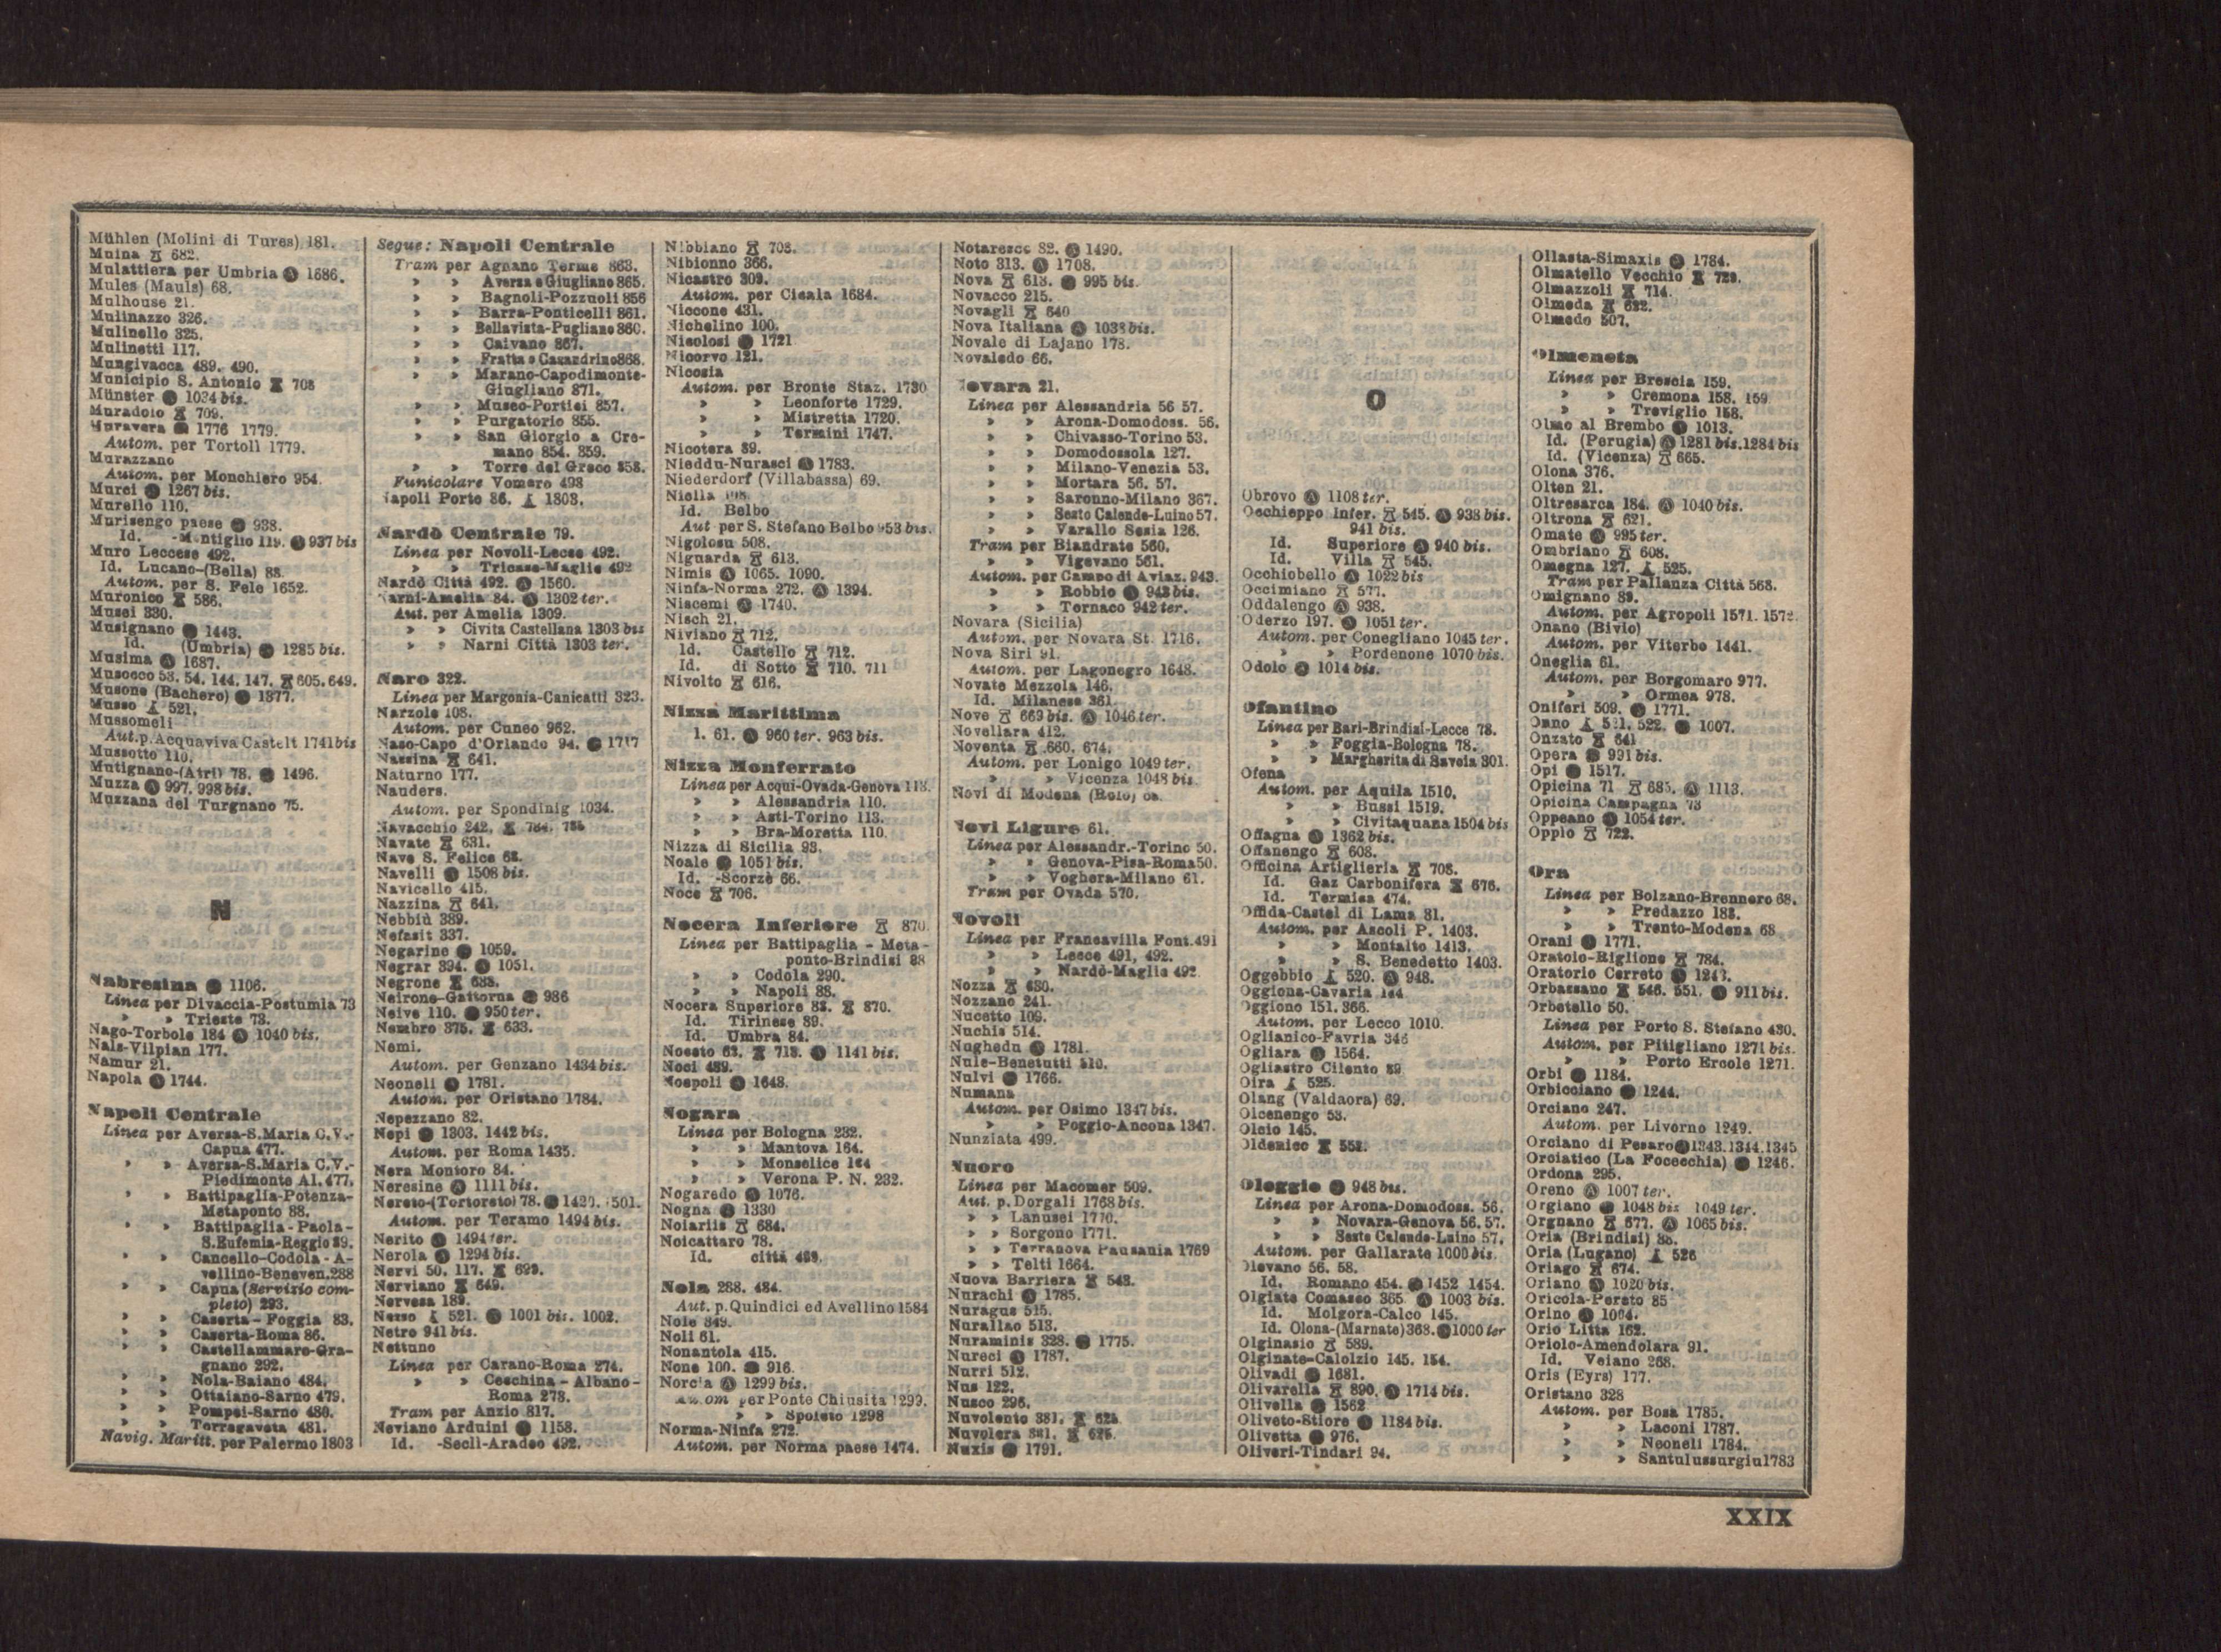 Mühlen (Molini di Tures) 181.
Muina 682.
Mulattiera per Umbria Ⓐ 1686.
Mules (Mauls) 68.
Mulhouse 21.
Mulinazzo 326.
Mulinello 325.
Mulinetti 117.
Mungivacca 489. 490.
Municipio S. Antonio 708
Münster Ⓐ 1034 bis.
Muradolo 709.
Muravera Ⓐ 1776 1779.
Autom. per Tortolì 1779.
Murazzano
Autom. per Monchiero 954.
Murci Ⓐ 1267 bis.
Murello 110.
Murisengo paese Ⓐ 938.
Id. -Montiglio 119. Ⓐ 937 bis
Muro Leccese 492.
Id. Lucano-(Bella) 88.
Autom. per S. Fele 1652.
Muronico 586.
Musei 330.
Musignano Ⓐ 1443.
Id. (Umbria) Ⓐ 1285 bis.
Musima Ⓐ 1687.
Musocco 53. 54. 144. 147. 605. 649.
Musone (Bachero) Ⓐ 1377.
Musso 521.
Mussomeli
Aut. p. Acquaviva Castelt 1741 bis
Mussotto 110.
Mutignano-(Atri) 78. Ⓐ 1496.
Muzza Ⓐ 997. 998 bis.
Muzzana del Turgnano 75.
N
Nabresina Ⓐ 1106.
Linea per Divaccia-Postumia 73
» » Trieste 73.
Nago-Torbole 184 Ⓐ 1040 bis.
Nals-Vilpian 177.
Namur 21.
Napola Ⓐ 1744.
Napoli Centrale
Linea per Aversa-S.Maria C.V.-
Capua 477.
» » Aversa-S.Maria C.V.-
Piedimonte Al. 477.
» » Battipaglia-Potenza-
Metaponto 88.
» » Battipaglia-Paola-
S.Eufemia-Reggio 89.
» » Cancello-Codola-A-
vellino-Beneven. 288
» » Capua (Servizio com-
pleto) 293.
» » Caserta-Foggia 83.
» » Caserta-Roma 86.
» » Castellammare-Gra-
gnano 292.
» » Nola-Baiano 484.
» » Ottaiano-Sarno 479.
» » Pompei-Sarno 480.
» » Torregaveta 481.
Navig. Maritt. per Palermo 1803
Segue: Napoli Centrale
Tram per Agnano Terme 863.
» » Aversa e Giugliano 865.
» » Bagnoli-Pozzuoli 856
» » Barra-Ponticelli 861.
» » Bellavista-Pugliano 860.
» » Caivano 867.
» » Fratta e Casandrino 868.
» » Marano-Capodimonte-
Giugliano 871.
» » Museo-Portici 857.
» » Purgatorio 855.
» » San Giorgio a Cre-
mano 854. 859.
» » Torre del Greco 858.
Funicolare Vomero 498
Napoli Porto 86. 1803.
Nardò Centrale 79.
Linea per Novoli-Lecce 492.
» » Tricase-Maglie 492
Nardò Città 492. Ⓐ 1560.
Narni-Amelia 84. Ⓐ 1302 ter.
Aut. per Amelia 1309.
» » Civita Castellana 1303 bis
» » Narni Città 1303 ter.
Naro 322.
Linea per Margonia-Canicattì 323.
Narzole 108.
Autom. per Cuneo 962.
Naso-Capo d'Orlando 94. Ⓐ 1717
Nassina 641.
Naturno 177.
Nauders.
Autom. per Spondinig 1034.
Navacchio 242. 784. 785
Navate 631.
Nave S. Felice 68.
Navelli Ⓐ 1508 bis.
Navicello 415.
Nazzina 641.
Nebbiù 389.
Nefasit 337.
Negarine Ⓐ 1059.
Negrar 394. Ⓐ 1051.
Negrone 685.
Neirone-Gattorna Ⓐ 986
Neive 110. Ⓐ 950 ter.
Nembro 375. 633.
Nemi.
Autom. per Genzano 1434 bis.
Neoneli Ⓐ 1781.
Autom. per Oristano 1784.
Nepezzano 82.
Nepi Ⓐ 1303. 1442 bis.
Autom. per Roma 1435.
Nera Montoro 84.
Neresine Ⓐ 1111 bis.
Nereto-(Tortoreto) 78. Ⓐ 1420. 1501.
Autom. per Teramo 1494 bis.
Nerito Ⓐ 1494 ter.
Nerola Ⓐ 1294 bis.
Nervi 50. 117. 699.
Nerviano 649.
Nervesa 189.
Nesso 521. Ⓐ 1001 bis. 1002.
Netro 941 bis.
Nettuno
Linea per Carano-Roma 274.
» » Cecchina-Albano-
Roma 273.
Tram per Anzio 817.
Neviano Arduini Ⓐ 1158.
Id. -Seclì-Aradeo 492.
Nibbiano 708.
Nibionno 366.
Nicastro 309.
Autom. per Cicala 1684.
Niccone 431.
Nichelino 100.
Nicolosi Ⓐ 1721
Nicorvo 121.
Nicosia
Autom. per Bronte Staz. 1730
» » Leonforte 1729.
» » Mistretta 1720.
» » Termini 1747.
Nicotera 89.
Nieddu-Nurasci Ⓐ 1783.
Niederdorf (Villabassa) 69.
Niella 108.
Id. Belbo
Aut per S. Stefano Belbo 953 bis.
Nigolosu 508.
Niguarda 613.
Nimis Ⓐ 1065. 1090.
Ninfa-Norma 272. Ⓐ 1394.
Niscemi Ⓐ 1740.
Nisch 21.
Niviano 712.
Id. Castello 712.
Id. di Sotto 710. 711
Nivolto 616.
Nizza Marittima
1. 61. Ⓐ 960 ter. 963 bis.
Nizza Monferrato
Linea per Acqui-Ovada-Genova 113.
» » Alessandria 110.
» » Asti-Torino 113.
» » Bra-Moretta 110.
Nizza di Sicilia 93.
Noale Ⓐ 1051 bis.
Id. -Scorzè 66.
Noce 706.
Nocera Inferiore 870
Linea per Battipaglia-Meta-
ponto-Brindisi 88
» » Codola 290.
» » Napoli 88.
Nocera Superiore 88. 870.
Id. Tirinese 89.
Id. Umbra 84.
Noceto 63. 713. Ⓐ 1141 bis.
Noci 489.
Noepoli Ⓐ 1648.
Nogara
Linea per Bologna 232.
» » Mantova 164.
» » Monselice 164
» » Verona P. N. 232.
Nogaredo Ⓐ 1076.
Nogna Ⓐ 1330
Noiariis 684.
Noicattaro 78.
Id. città 489.
Nola 288. 484.
Aut. p. Quindici ed Avellino 1584
Nole 349.
Noli 61.
Nonantola 415.
None 100. Ⓐ 916.
Norcia Ⓐ 1299 bis.
Autom per Ponte Chiusita 1299.
» » Spoleto 1298
Norma-Ninfa 272.
Autom. per Norma paese 1474.
Notaresco 82. Ⓐ 1490.
Noto 313. Ⓐ 1708.
Nova 613. Ⓐ 995 bis.
Novacco 215.
Novagli 640
Nova Italiana Ⓐ 1033 bis.
Novale di Lajano 178.
Novaledo 66.
Novara 21.
Linea per Alessandria 56 57.
» » Arona-Domodoss. 56.
» » Chivasso-Torino 53.
» » Domodossola 127.
» » Milano-Venezia 53.
» » Mortara 56. 57.
» » Saronno-Milano 367.
» » Sesto Calende-Luino 57.
» » Varallo Sesia 126.
Tram per Biandrate 560.
» » Vigevano 561.
Autom. per Campo di Aviaz. 943.
» » Robbio Ⓐ 943 bis.
» » Tornaco 942 ter.
Novara (Sicilia)
Autom. per Novara St. 1716.
Nova Siri 91.
Autom. per Lagonegro 1648.
Novate Mezzola 146.
Id. Milanese 361
Nove 669 bis. Ⓐ 1046 ter.
Novellara 412.
Noventa 660. 674.
Autom. per Lonigo 1049 ter.
» » Vicenza 1048 bis
Novi di Modena (Rolo)
Novi Ligure 61.
Linea per Alessandr.-Torino 50.
» » Genova-Pisa-Roma 50.
» » Voghera-Milano 61.
Tram per Ovada 570.
Novoli
Linea per Francavilla Font. 491
» » Lecce 491, 492.
» » Nardò-Maglie 492.
Nozza 630.
Nozzano 241.
Nucetto 109.
Nuchis 514.
Nughedu Ⓐ 1781.
Nule-Benetutti 510.
Nulvi Ⓐ 1766.
Numana
Autom. per Osimo 1347 bis.
» » Poggio-Ancona 1347.
Nunziata 499.
Nuoro
Linea per Macomer 509.
Aut. p. Dorgali 1768 bis.
» » Lanusei 1770.
» » Sorgono 1771.
» » Terranova Pausania 1769
» » Telti 1664.
Nuova Barriera 543.
Nurachi Ⓐ 1785.
Nuragus 515.
Nurallao 513.
Nuraminis 328. Ⓐ 1775.
Nureci Ⓐ 1787.
Nurri 512.
Nus 122.
Nusco 296.
Nuvolento 381. 625.
Nuvolera 381. 625.
Nuxis Ⓐ 1791.
O
Obrovo Ⓐ 1108 ter.
Occhieppo Infer. 545. Ⓐ 938 bis.
941 bis.
Id. Superiore Ⓐ 940 bis.
Id. Villa 545.
Occhiobello Ⓐ 1022 bis
Occimiano 577.
Oddalengo Ⓐ 938.
Oderzo 197. Ⓐ 1051 ter.
Autom. per Conegliano 1045 ter.
» » Pordenone 1070 bis.
Odolo Ⓐ 1014 bis.
Ofantino
Linea per Bari-Brindisi-Lecce 78.
» » Foggia-Bologna 78.
» » Margherita di Savoia 301.
Ofena
Autom. per Aquila 1510.
» » Bussi 1519.
» » Civitaquana 1504 bis
Offagna Ⓐ 1362 bis.
Offanengo 608.
Officina Artiglieria 708.
Id. Gaz Carbonifera 676.
Id. Termisa 474.
Offida-Castel di Lama 81.
Autom. per Ascoli P. 1403.
» » Montalto 1413.
» » S. Benedetto 1403.
Oggebbio 520. Ⓐ 948.
Oggiona-Cavaria 144
Oggiono 151. 366.
Autom. per Lecco 1010.
Oglianico-Favria 346
Ogliara Ⓐ 1564.
Ogliastro Cilento 89
Oira 525.
Olang (Valdaora) 69.
Olcenengo 53.
Olcio 145.
Oldenico 552.
Oleggio Ⓐ 948 bis.
Linea per Arona-Domodoss. 56.
» » Novara-Genova 56. 57.
» » Sesto Calende-Luino 57.
Autom. per Gallarate 1000 bis.
Olevano 56. 58.
Id. Romano 454. Ⓐ 1452 1454.
Olgiate Comasco 365 Ⓐ 1003 bis.
Id. Molgora-Calco 145.
Id. Olona-(Marnate) 368. Ⓐ 1000 ter
Olginasio 589.
Olginate-Calolzio 145. 154.
Olivadi Ⓐ 1681.
Olivarella 890. Ⓐ 1714 bis.
Olivella Ⓐ 1562
Oliveto-Stiore Ⓐ 1184 bis.
Olivetta Ⓐ 976.
Oliveri-Tindari 94.
Ollasta-Simaxis Ⓐ 1784.
Olmatello Vecchio 729.
Olmazzoli 714.
Olmeda 622.
Olmedo 507.
Olmeneta
Linea per Brescia 159.
» » Cremona 158. 159
» » Treviglio 158.
Olmo al Brembo Ⓐ 1013.
Id. (Perugia) Ⓐ 1281 bis. 1284 bis
Id. (Vicenza) 665.
Olona 376.
Olten 21.
Oltresarca 184. Ⓐ 1040 bis.
Oltrona 621.
Omate Ⓐ 995 ter.
Ombriano 608.
Omegna 127. 525.
Tram per Pallanza Città 568.
Omignano 89.
Autom. per Agropoli 1571. 1572.
Onano (Bivio)
Autom. per Viterbo 1441.
Oneglia 61.
Autom. per Borgomaro 977.
» » Ormea 978.
Oniferi 509. Ⓐ 1771.
Onno 521. 522. Ⓐ 1007.
Onzato 641
Opera Ⓐ 991 bis.
Opi Ⓐ 1517.
Opicina 71 685. Ⓐ 1113.
Opicina Campagna 73
Oppeano Ⓐ 1054 ter.
Oppio 722.
Ora
Linea per Bolzano-Brennero 68.
» » Predazzo 183.
» » Trento-Modena 68
Orani Ⓐ 1771.
Oratoio-Riglione 784.
Oratorio Cerreto Ⓐ 1243.
Orbassano 546. 551. Ⓐ 911 bis.
Orbetello 50.
Linea per Porto S. Stefano 430.
Autom. per Pitigliano 1271 bis.
» » Porto Ercole 1271.
Orbi Ⓐ 1184.
Orbicciano Ⓐ 1244.
Orciano 247.
Autom. per Livorno 1249.
Orciano di Pesaro Ⓐ 1343. 1344. 1345
Orciatico (La Focecchia) Ⓐ 1246.
Ordona 295.
Oreno Ⓐ 1007 ter.
Orgiano Ⓐ 1048 bis 1049 ter.
Orgnano 677. Ⓐ 1065 bis.
Oria (Brindisi) 88.
Oria (Lugano) 526
Oriago 674.
Oriano Ⓐ 1020 bis.
Oricola-Pereto 85
Orino Ⓐ 1004.
Orio Litta 162.
Oriolo-Amendolara 91.
Id. Veiano 268.
Oris (Eyrs) 177.
Oristano 328
Autom. per Bosa 1785.
» » Laconi 1787.
» » Neoneli 1784.
» » Santulussurgiu 1783
XXIX